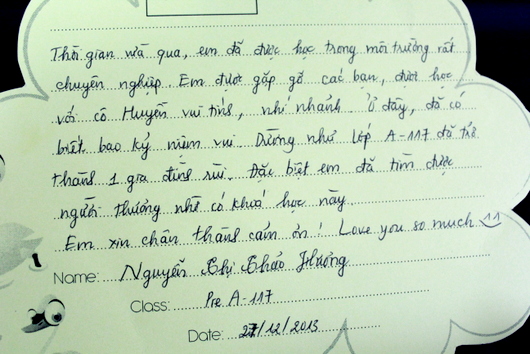 Thời gian vừa qua, em đã được học trong môi trường rất
chuyên nghiệp. Em được gặp gỡ các bạn, được học
với cô Huyền vui tính, nhí nhảnh. Ở đây, đã có
biết bao kỷ niệm vui. Dường như lớp A-117 đã trở
thành 1 gia đình rồi. Đặc biệt em đã tìm được
người thương nhờ có khoá học này.
Em xin chân thành cảm ơn! Love you so much
Name: Nguyễn Thị Thảo Hương
Class: Pre A-117
Date: 27/12/2013